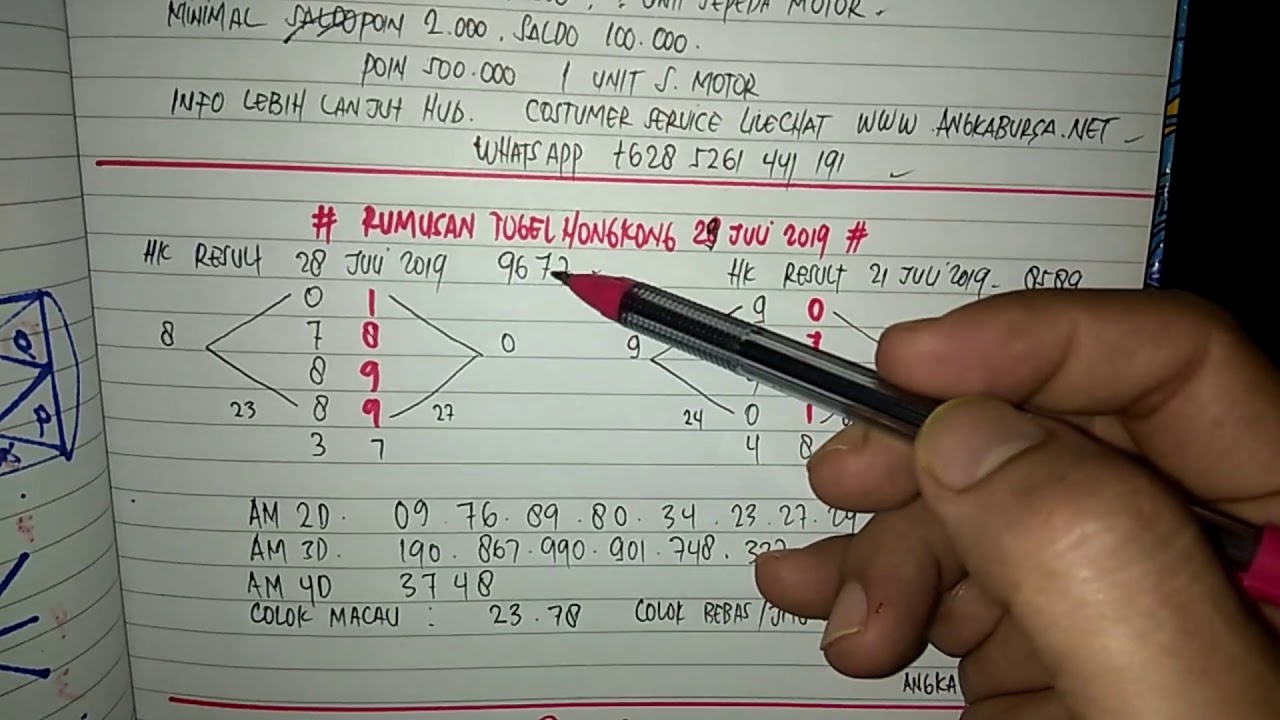 UNIT SEPEDA MOTOR.
MINIMAL SALDO POIN 2.000. SALDO 100.000.
POIN 500.000 1 UNIT S. MOTOR
INFO LEBIH LANJUT HUB. COSTUMER SERVICE LIVECHAT WWW.ANGKABURSA.NET
WHATSAPP +628 5261 441 191
# RUMUSAN TOGEL HONGKONG 29 JULI 2019 #
HK RESULT 28 JULI 2019 967
HK RESULT 21 JULI 2019 - 8589
0 1 9 0
8 7 8 0 9
8 9
23 8 9 27 24 0 1
3 7 4 8
AM 2D. 09.76.89.80.34.23.27.29
AM 3D. 190.867.990.901.748.
AM 4D 3748
COLOK MACAU : 23.78 COLOK BEBAS /
ANGKA